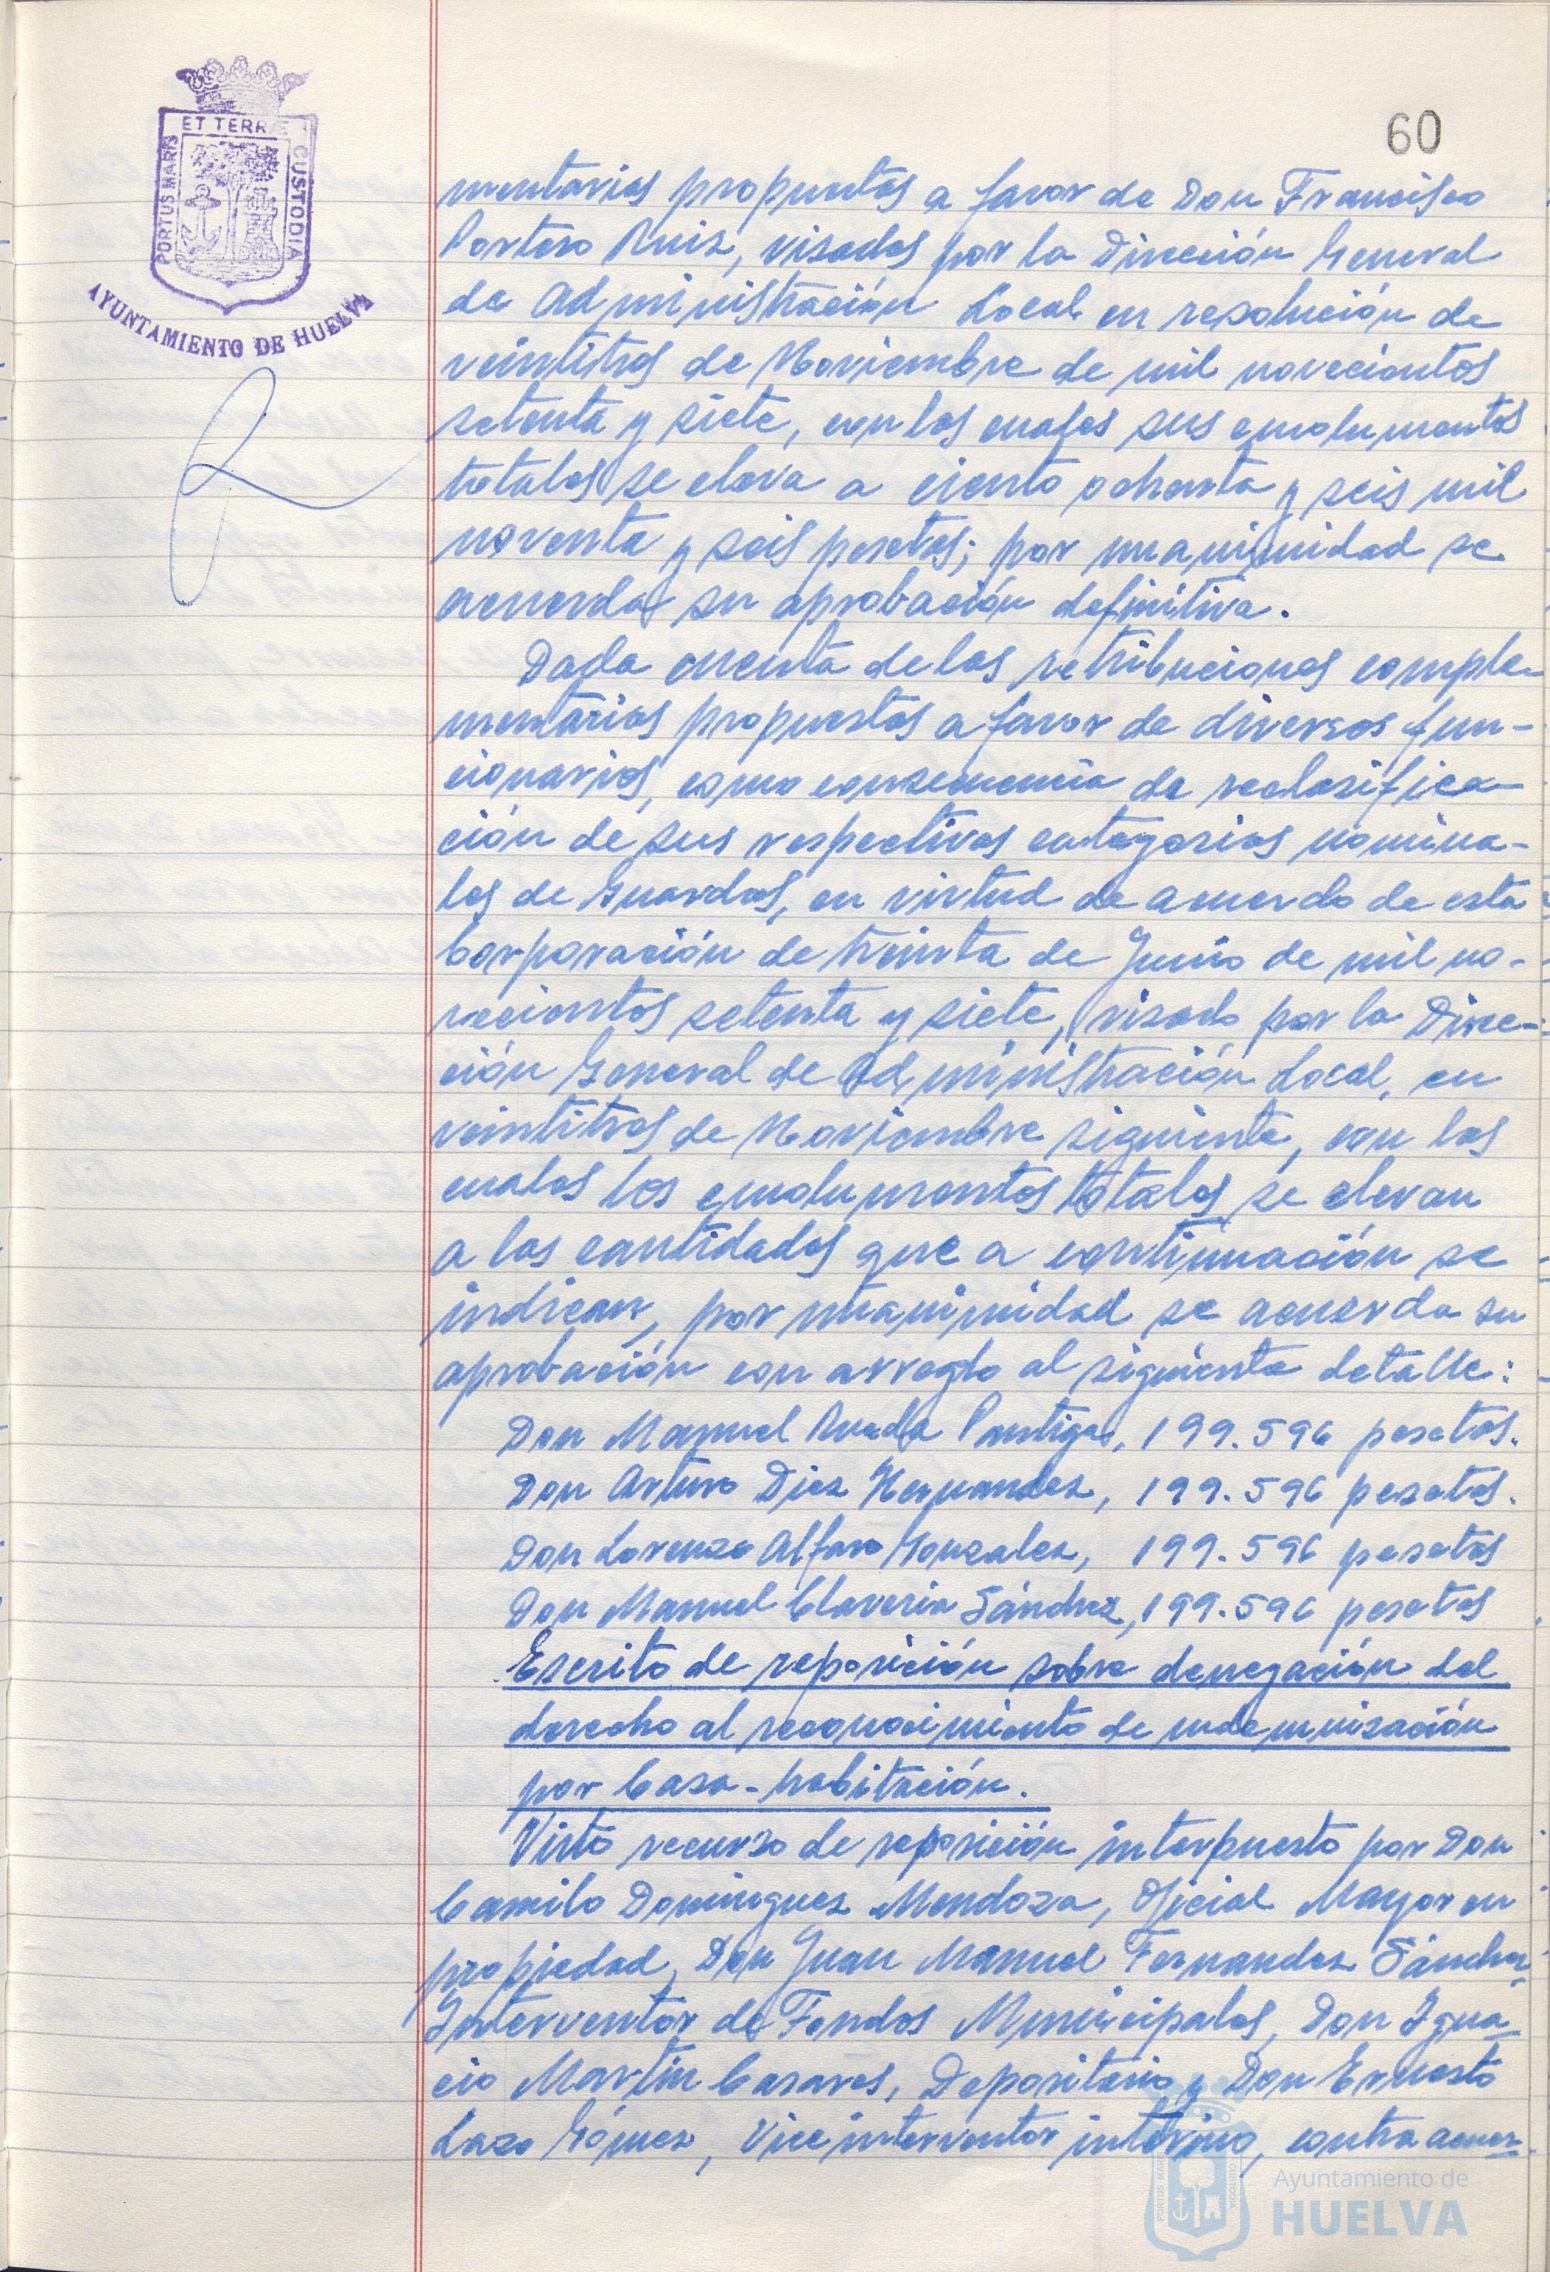 60
ET TERRÆ
PORTUS MARIS
CUSTODIA
AYUNTAMIENTO DE HUELVA
mentarias propuestas a favor de Don Francisco
Portero Ruiz, visadas por la Dirección General
de Administración Local en resolución de
veintitres de Noviembre de mil novecientos
setenta y siete, con las cuales sus emolumentos
totales se eleva a ciento ochenta y seis mil
noventa y seis pesetas; por unanimidad se
acuerda su aprobación definitiva.
Dada cuenta de las retribuciones comple-
mentarias propuestas a favor de diversos fun-
cionarios, como consecuencia de reclasifica-
ción de sus respectivas categorias nomina-
les de Guardas, en virtud de acuerdo de esta
Corporación de treinta de Junio de mil no-
vecientos setenta y siete, visado por la Direc-
ción General de Administración Local, en
veintitres de Noviembre siguiente, con las
cuales los emolumentos totales se elevan
a las cantidades que a continuación se
indican, por unanimidad se acuerda su
aprobación con arreglo al siguiente detalle:
Don Manuel Rueda Pantiga, 199.596 pesetas.
Don Arturo Diez Hernandez, 199.596 pesetas.
Don Lorenzo Alfaro Gonzalez, 199.596 pesetas
Don Manuel Claveria Sánchez, 199.596 pesetas
Escrito de reposición sobre denegación del
derecho al reconocimiento de indemnización
por Casa-habitación.
Visto recurso de reposición interpuesto por Don
Camilo Dominguez Mendoza, Oficial Mayor en
propiedad, Don Juan Manuel Fernandez Sánchez,
Interventor de Fondos Municipales, Don Igna-
cio Martin Casares, Depositario y Don Ernesto
Lazo Gómez, Viceinterventor interino, contra acuer-
Ayuntamiento de
HUELVA